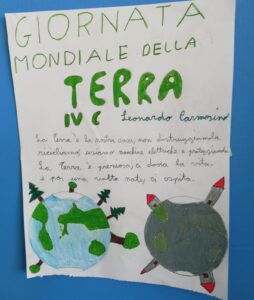 GIORNATA
MONDIALE DELLA
TERRA
IV C Leonardo Carmosino
La Terra è la nostra casa, non distruggiamola
ricicliamo, usiamo macchine elettriche e proteggiamola
La Terra è preziosa, ci dona la vita
e poi una volta nati, ci ospita.